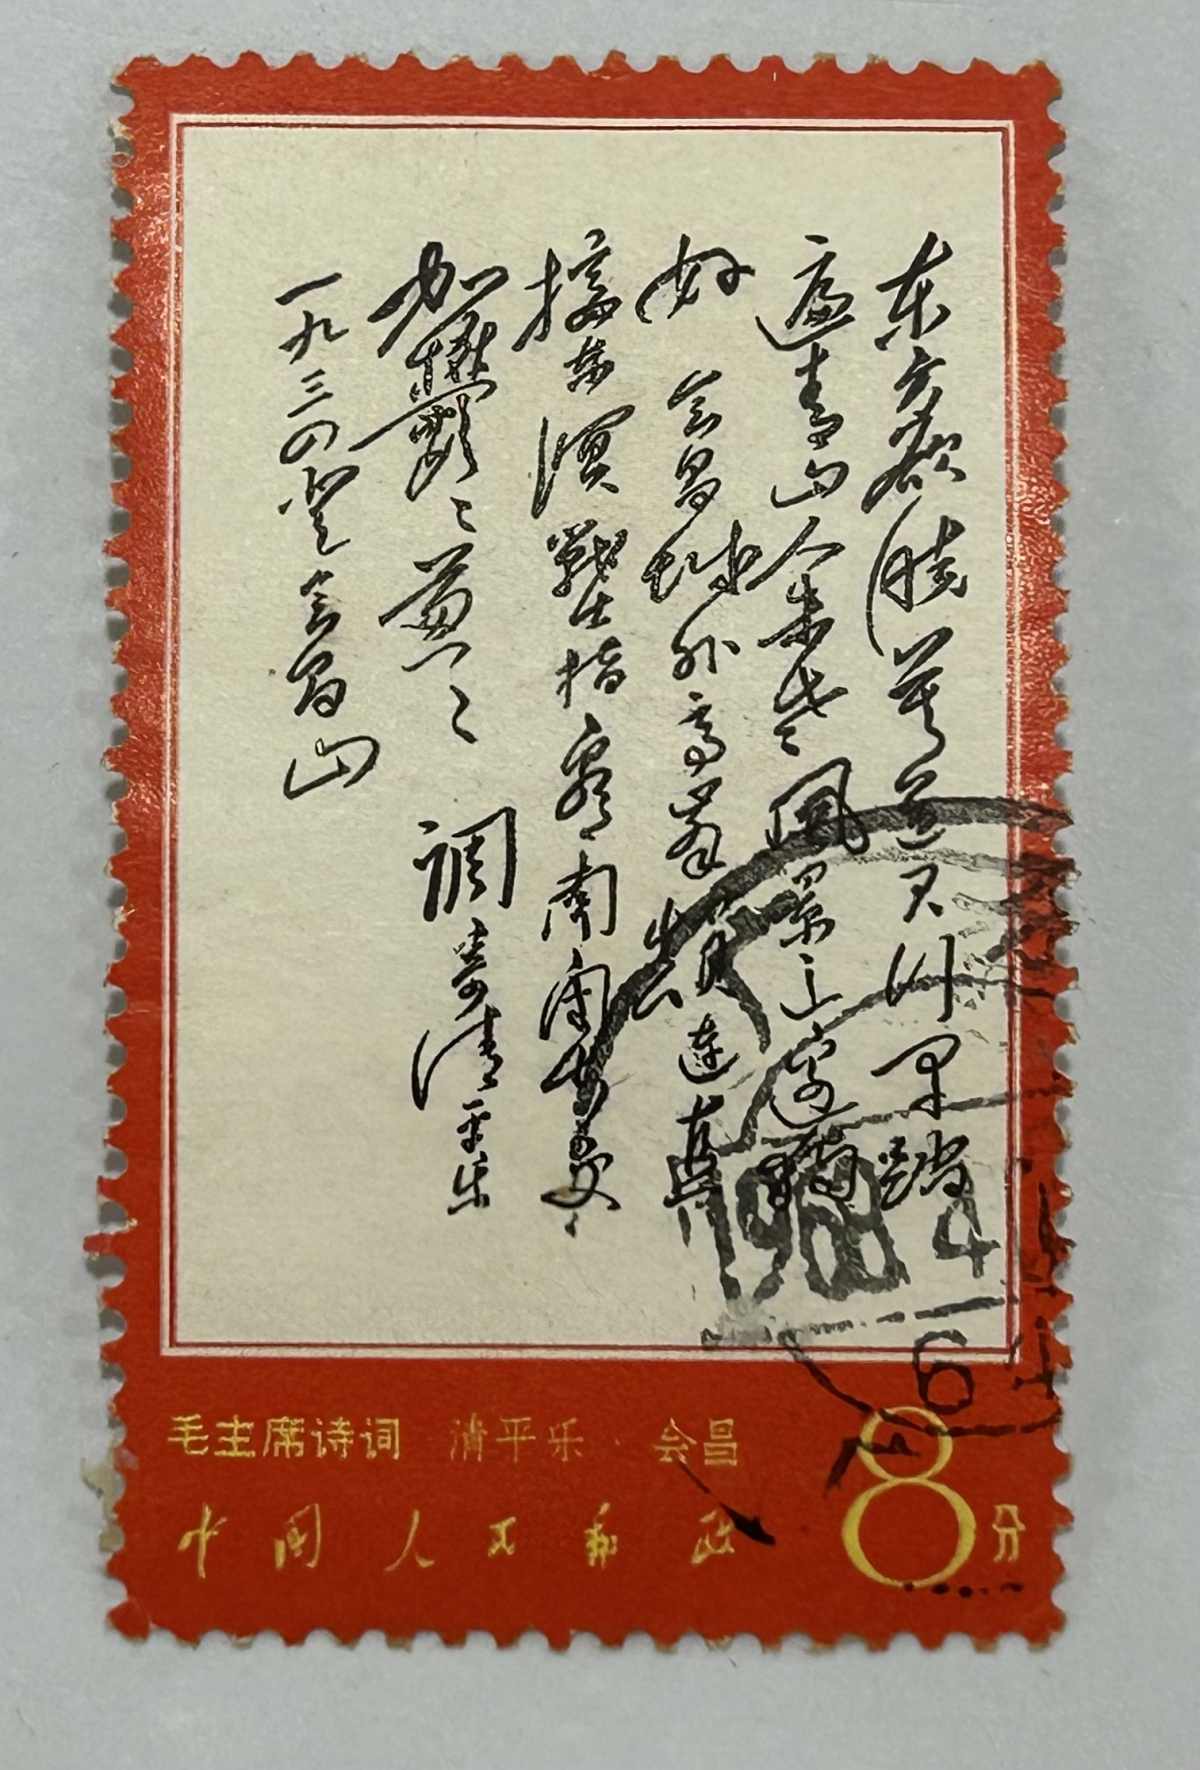 东方欲晓莫道君行早踏
遍青山人未老风景这边独
好 会昌城外高峰颠连直
接东溟戰士指看南粤更
加鬱〻葱〻 调寄清平乐
一九三四登会昌山
1968 4
6
毛主席诗词 清平乐·会昌
中国人民邮政
8分